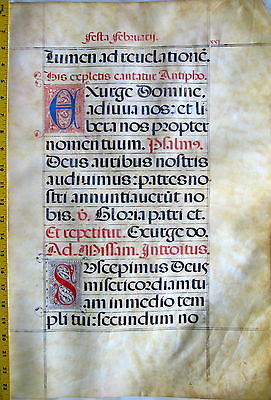 Festa Februarij.
xxj
Lumen ad reuelationē.
His expletis cantatur Antipho.
EXurge Domine,
adiuua nos: et li
bera nos propter
nomen tuum. Psalm9.
Deus auribus nostris
audiuimus: patres no
stri annuntiauerūt no
bis. v. Gloria patri et.
Et repetitur. Exurge do.
Ad Missam. Introitus.
SUscepimus Deus
misericordiam tu
am in medio tem
pli tui: secundum no